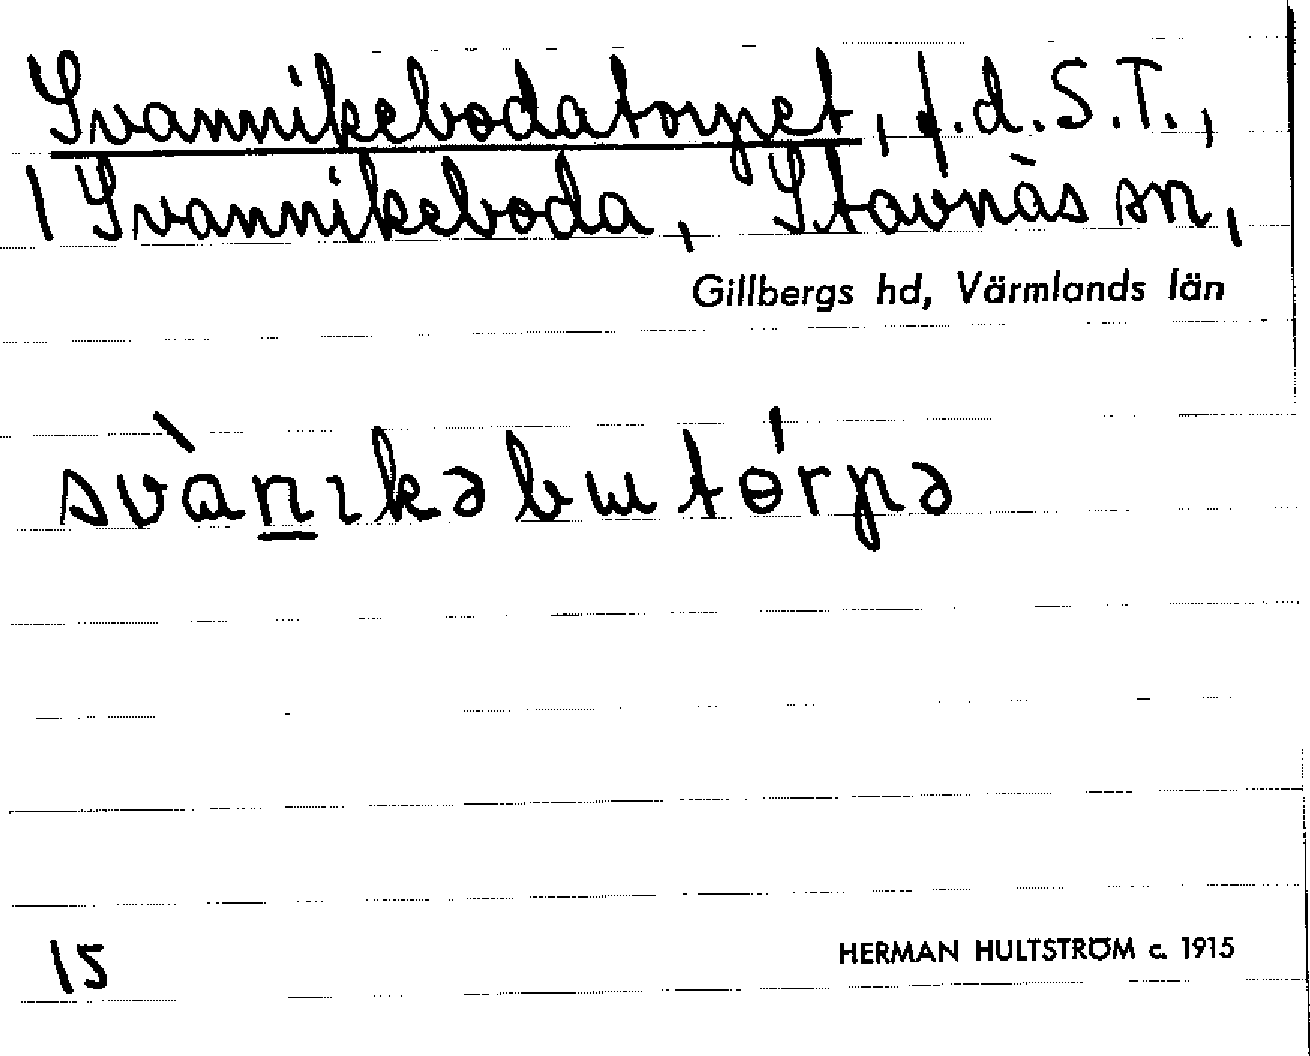 Svannikebodatorpet, f.d. S.T.,
1 Svannikeboda, Stavnäs sn,
Gillbergs hd, Värmlands län
svànıkə bɯtɵ́rpə
15
HERMAN HULTSTRÖM c. 1915